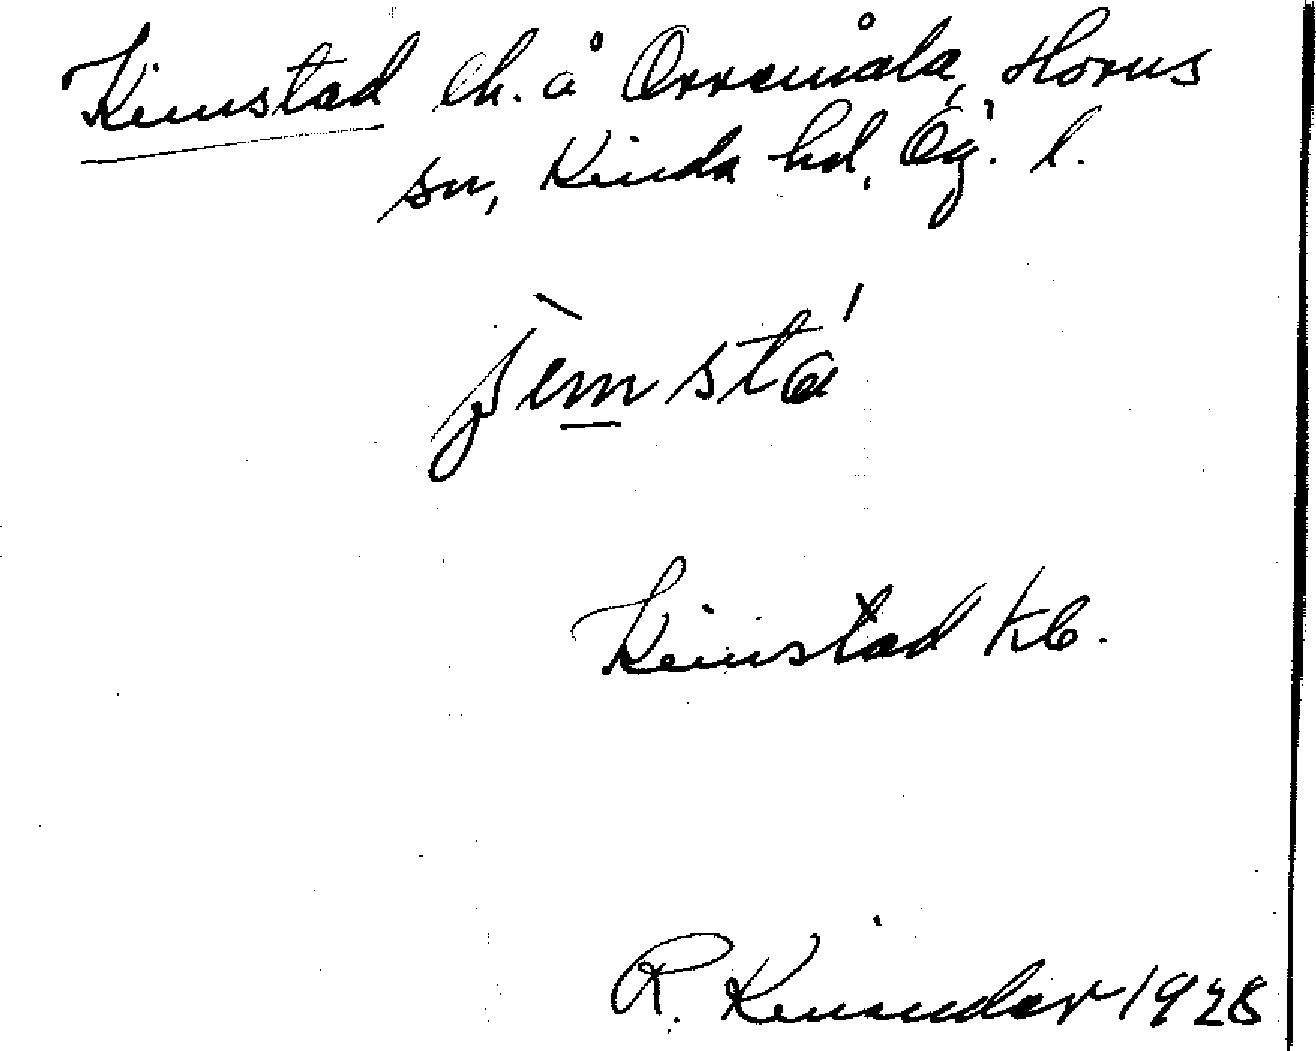 Kimstad lh. å Orremåla, Horns
sn, Kinda hd, Ög. l.
ʃìmstá
Kimstad kb.
R. 1928